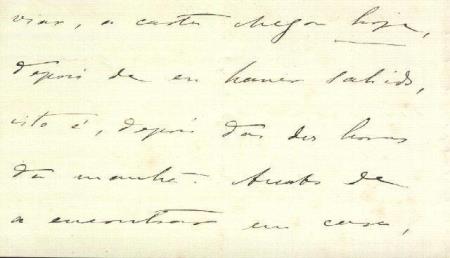 viar, a carta chegou hoje,
depois de eu haver sahido,
isto é, depois das dez horas
da manhã. Acabo de
a encontrar em casa,